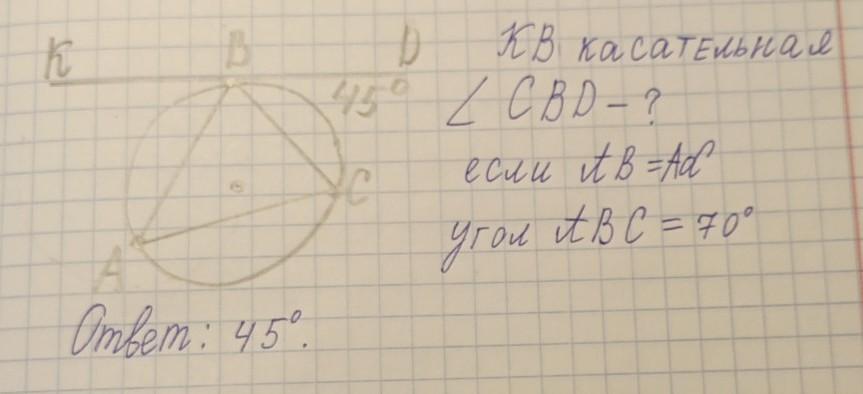 K B D
КВ касательная
45°
∠ CBD - ?
если AB = AC
C
угол ABC = 70°
A
Ответ: 45°.